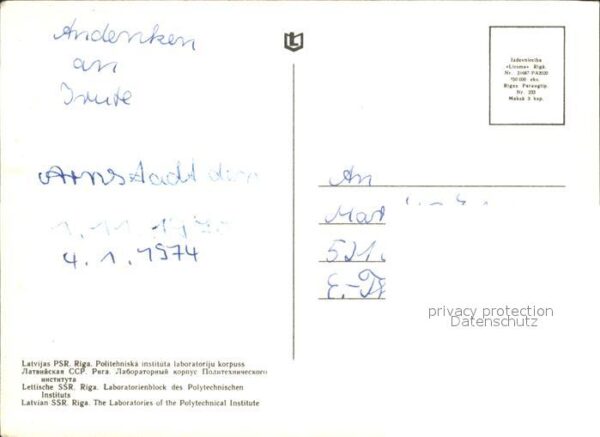 Andenken
an
Irute
Arnstadt den
4.1.1974
Izdevniecība
«Liesma» Rīgā
Rīgas Paraugtip.
Nr. 202
Maksā 3 kap.
An
Mar
521.
E.-Th
privacy protection
Datenschutz
Latvijas PSR. Rīga. Politehniskā institūta laboratoriju korpuss
Латвийская ССР. Рига. Лабораторный корпус Политехнического
института
Lettische SSR. Riga. Laboratorienblock des Polytechnischen
Instituts
Latvian SSR. Riga. The Laboratories of the Polytechnical Institute